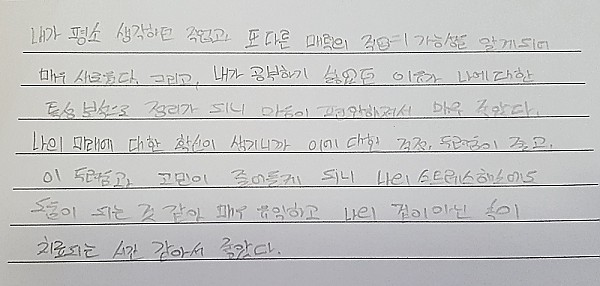 내가 평소 생각하던 직업과 또 다른 매력의 직업의 가능성을 알게되어
매우 새로웠다. 그리고, 내가 공부하기 싫었던 이유가 나에 대한
특성 분석으로 정리가 되니 마음이 편안해져서 매우 좋았다.
나의 미래에 대한 확신이 생기니까 이에 대한 걱정, 두려움이 줄고,
이 두려움과 고민이 줄어들게 되니 나의 스트레스해소에도
도움이 되는 것 같아 매우 유익하고 나의 겉이아닌 속이
치료되는 시간 같아서 좋았다.